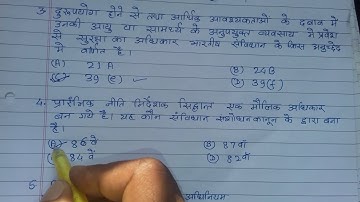 3. दुरूपयोग होने से तथा आर्थिक आवश्यकताओं के दबाव में
उनकी आयु या सामर्थ्य के अनुपयुक्त व्यवसाय में प्रवेश
से सुरक्षा का अधिकार भारतीय संविधान के किस अनुच्छेद
में वर्णित है।
(A) 21A (B) 24B
39(e) ✓ (D) 39(f)
4. प्रारंभिक नीति निर्देशक सिद्धान्त एक मौलिक अधिकार
बन गये है। यह कौन संविधान संशोधन कानून के द्वारा बना
है।
(A) 86वें (B) 87वां
84वें (D) 82वां
5.
अधिनियम